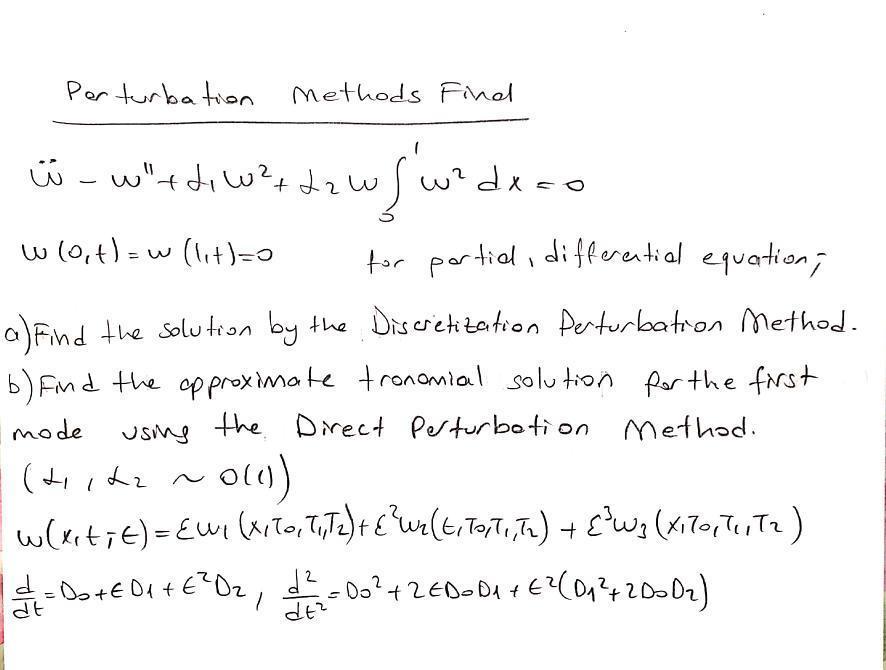 Perturbation Methods Final
ẅ - w'' + α₁w² + α₂w ∫₀¹ w² dx = 0
w(0,t) = w(1,t) = 0 for partial, differential equation;
a) Find the solution by the Discretization Perturbation Method.
b) Find the approximate tronomial solution for the first
mode using the Direct Perturbation Method.
(α₁, α₂ ~ O(1))
w(x,t;ε) = εw₁(x,T₀,T₁,T₂) + ε²w₂(t,T₀,T₁,T₂) + ε³w₃(x,T₀,T₁,T₂)
d/dt = D₀ + εD₁ + ε²D₂, d²/dt² = D₀² + 2εD₀D₁ + ε²(D₁² + 2D₀D₂)